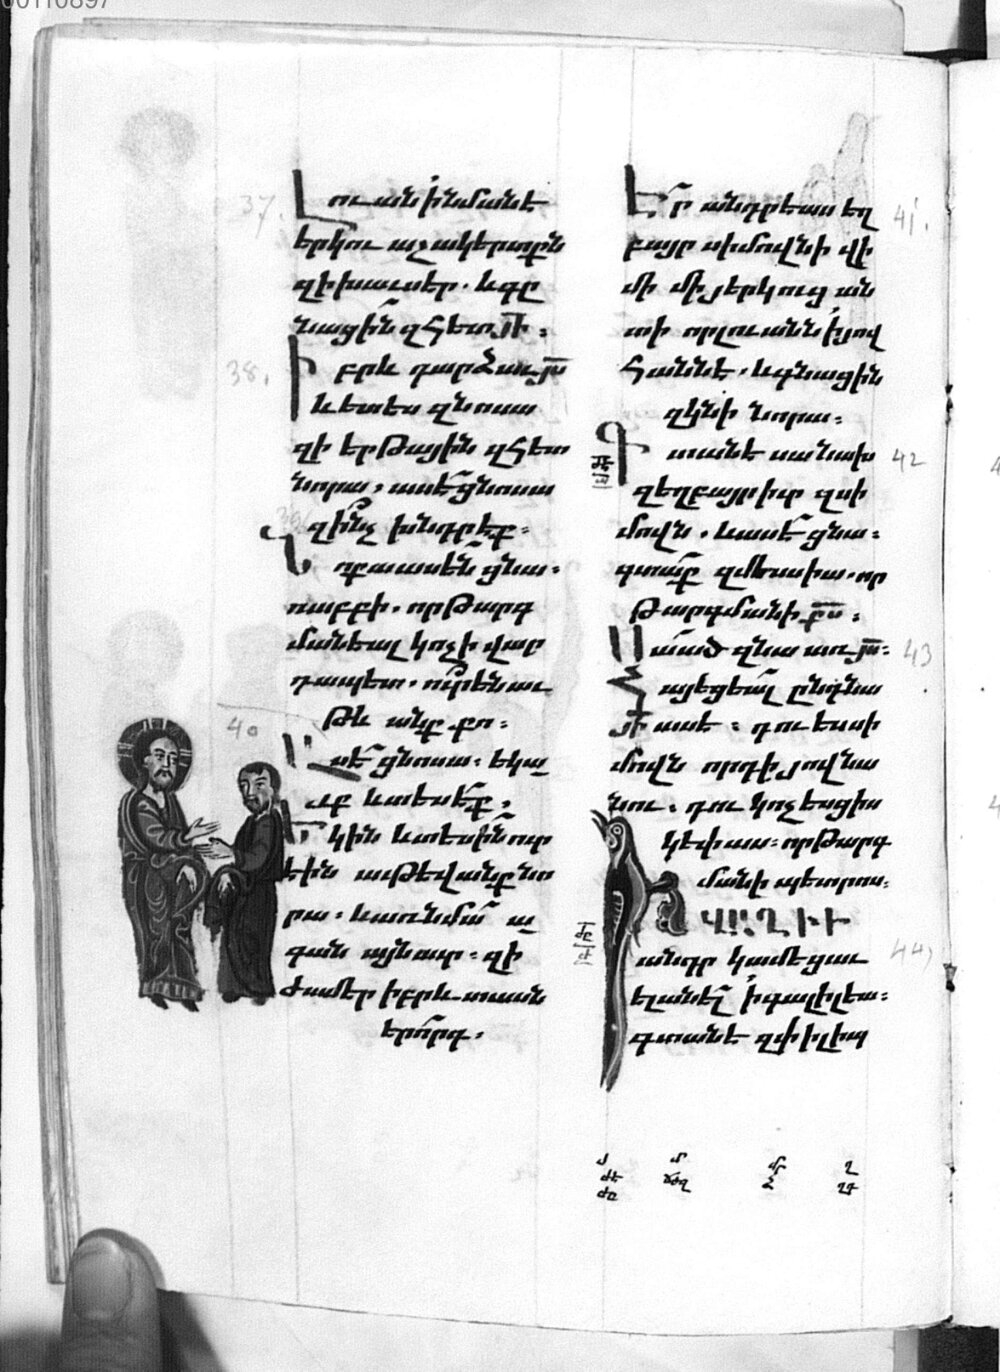 00110897
37.
Լուան ի նմանէ
երկու աշակերտքն
զի խաւսէր. և գը
նացին զհետ յի։
38.
Իբրև դարձաւ յս
և ետես զնոսա
զի երթային զհետ
նորա, ասէ ցնոսա
զի՞նչ խնդրէք։
Նոքա ասեն ցնա։
ռաբբի. որ թարգ
մանեալ կոչի վար
դապետ. ո՞ւր են աւ
թևանք քո։
40
Ասէ ցնոսա։ եկա
յք և տեսէք,
եկին և տեսին ուր
էին աւթևանք նո
րա. և առ նմա ա
գան այն աւր։ զի
ժամ էր իբրև տասն
երորդ.
Էր անդրեաս եղ
41.
բայր սիմովնի վի
մի մի յերկուց ան
տի որ լուան ի յով
հաննէ. և գնացին
զկնի նորա։
Գտանէ սա նախ
42
զեղբայր իւր զսի
մովն. և ասէ ցնա։
գտաք զմեսսիա. որ
թարգմանի քս։
Սա ած զնա առ յս։
43
Հայեցեալ ընդ նա
յի ասէ։ դու ես սի
մովն որդի յովնա
նու. դու կոչեսցիս
կեփաս։ որ թարգ
մանի պետրոս։
ՎԱՂԻՒ
անդր կամեցաւ
44,
ելանել ի գալիլեա։
գտանէ զփիլիպ